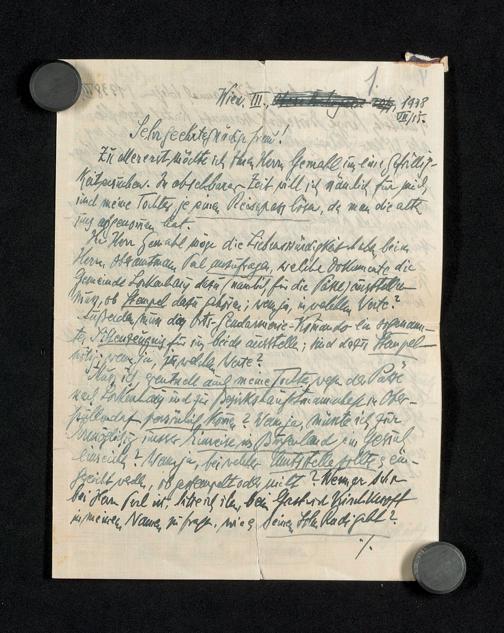 1.
Wien, III., 1938
VIII/15.
Sehr geehrte gnädige Frau!
Zu allererst möchte ich Ihren Herrn Gemahl um eine Gefällig-
keit ersuchen. In absehbarer Zeit will ich nämlich für mich
und meine Tochter je einen Reisepass lösen, da man die alten
uns abgenommen hat.
Ihr Herr Gemahl möge die Liebenswürdigkeit haben, beim
Herrn Oberamtmann auszufragen, welche Dokumente die
Gemeinde Lockenhaus dazu (nämlich für die Pässe) ausstellen
muss, ob Stempel dazu gehören; wenn ja, in welchem Werte?
Außerdem muss das Orts-Gendarmerie-Kommando ein sogenann-
tes Sittenzeugnis für uns beide ausstellen; sind dazu Stempel
nötig; wenn ja, in welchem Werte?
Muss ich, eventuell auch meine Tochter, wegen der Pässe
nach Lockenhaus und zur Bezirkshauptmannschaft in Ober-
pullendorf persönlich kommen? Wenn ja, müsste ich zur
Ermöglichung unserer Einreise ins Burgenland ein Gesuch
einreichen? Wenn ja, bei welcher Amtsstelle sollte es ein-
gereicht werden, ob gestempelt oder nicht? Wenn er schon
bei Herrn ist, bitte ich ihn, beim Gastwirt
in meinem Namen zu fragen, wie es seinem Sohn geht?
./.